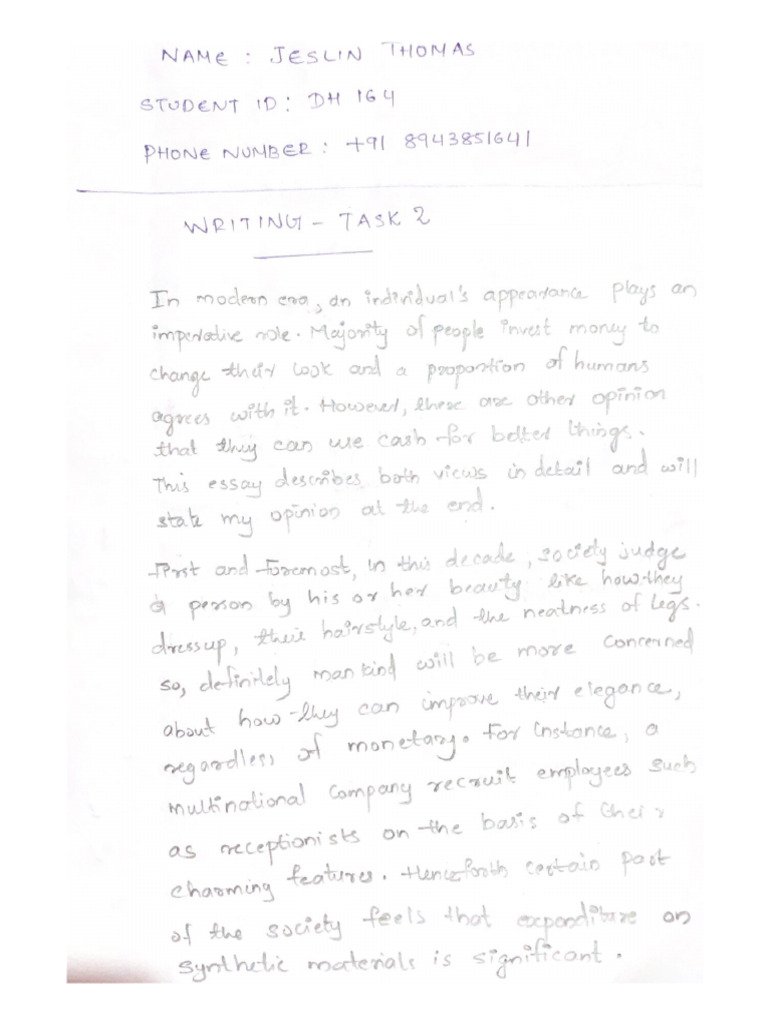 NAME : JESLIN THOMAS
STUDENT ID : DH 164
PHONE NUMBER : +91 8943851641
WRITING - TASK 2
In modern era, an individual's appearance plays an
imperative role. Majority of people invest money to
change their look and a proportion of humans
agrees with it. However, there are other opinion
that they can use cash for better things.
This essay describes both views in detail and will
state my opinion at the end.
First and foremost, in this decade, society judge
a person by his or her beauty like how they
dress up, their hairstyle, and the neatness of legs.
so, definitely mankind will be more concerned
about how they can improve their elegance,
regardless of monetary. For instance, a
multinational company recruit employees such
as receptionists on the basis of their
charming features. Henceforth certain part
of the society feels that expenditure on
synthetic materials is significant.